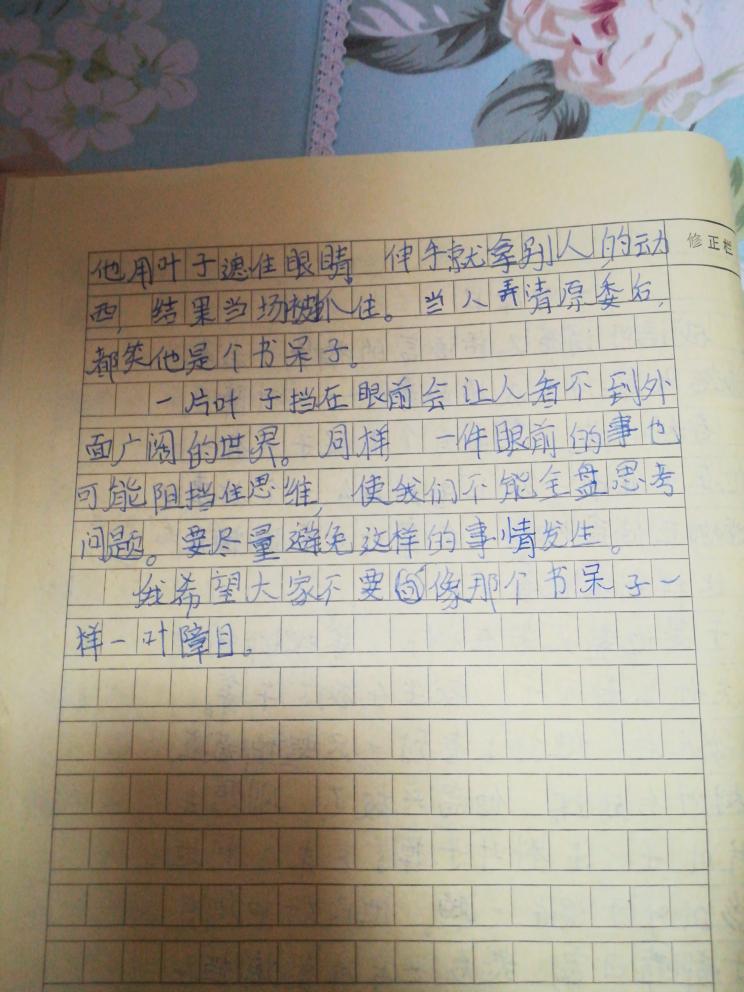 他用叶子遮住眼睛 伸手就拿别人的动 修正栏
西,结果当场被抓住。当人弄清原委后,
都笑他是个书呆子。
一片叶子挡在眼前会让人看不到外
面广阔的世界。同样 一件眼前的事也
可能阻挡住思维,使我们不能全盘思考
问题。要尽量避免这样的事情发生。
我希望大家不要像那个书呆子一
样一叶障目。